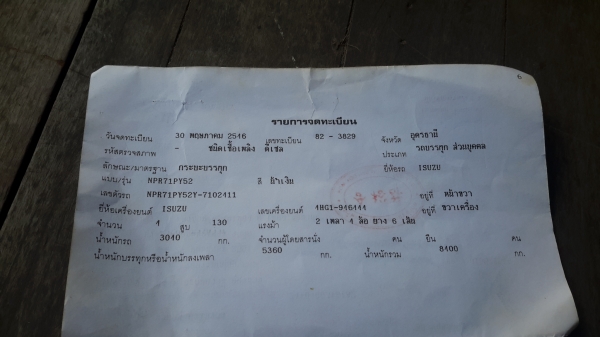 รายการจดทะเบียน
วันจดทะเบียน 30 พฤษภาคม 2546 เลขทะเบียน 82 - 3829 จังหวัด อุดรธานี
รหัสตรวจสภาพ - ชนิดเชื้อเพลิง ดีเซล ประเภท รถบรรทุก ส่วนบุคคล
ลักษณะ/มาตรฐาน กระบะบรรทุก ยี่ห้อรถ ISUZU
แบบ/รุ่น NPR71PY52 สี
เลขตัวรถ NPR71PY52Y-7102411 อยู่ที่ หน้าขวา
ยี่ห้อเครื่องยนต์ ISUZU เลขเครื่องยนต์ 4HG1-946444 อยู่ที่ ขวาเครื่อง
จำนวน 4 สูบ 130 แรงม้า 2 เพลา 4 ล้อ ยาง 6 เส้น
น้ำหนักรถ 3040 กก. จำนวนผู้โดยสารนั่ง คน ยืน คน
น้ำหนักบรรทุกหรือน้ำหนักลงเพลา 5360 กก. น้ำหนักรวม 8400 กก.